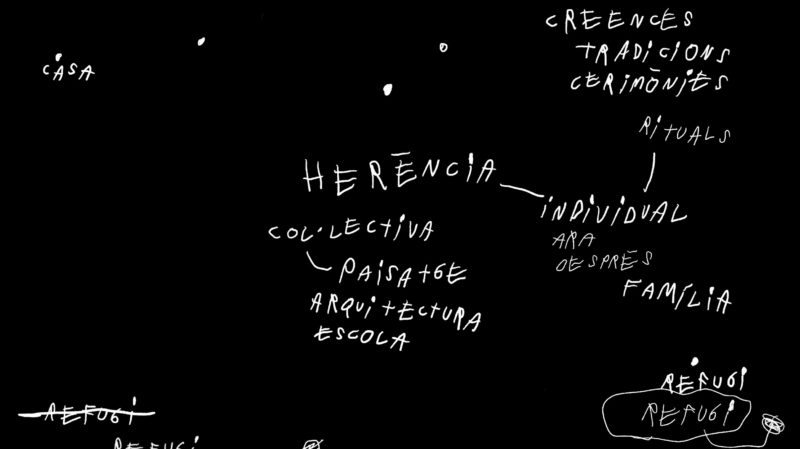 CREENCES
TRADICIONS
CERIMÒNIES
CASA
RITUALS
HERÈNCIA
INDIVIDUAL
ARA
DESPRÉS
FAMÍLIA
COL·LECTIVA
PAISATGE
ARQUITECTURA
ESCOLA
REFUGI
REFUGI
REFUGI
REFUGI